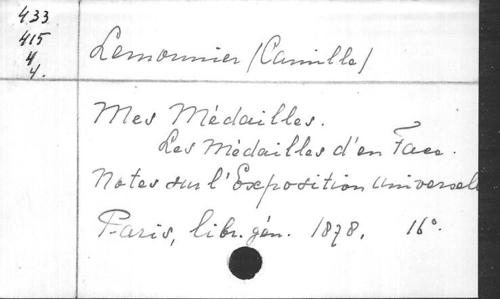 433
415
4
4.
Lemonnier (Camille)
Mes Médailles.
Les Médailles d'en Face.
Notes sur l'Exposition Universel
Paris, libr. gén. 1878. 16°.